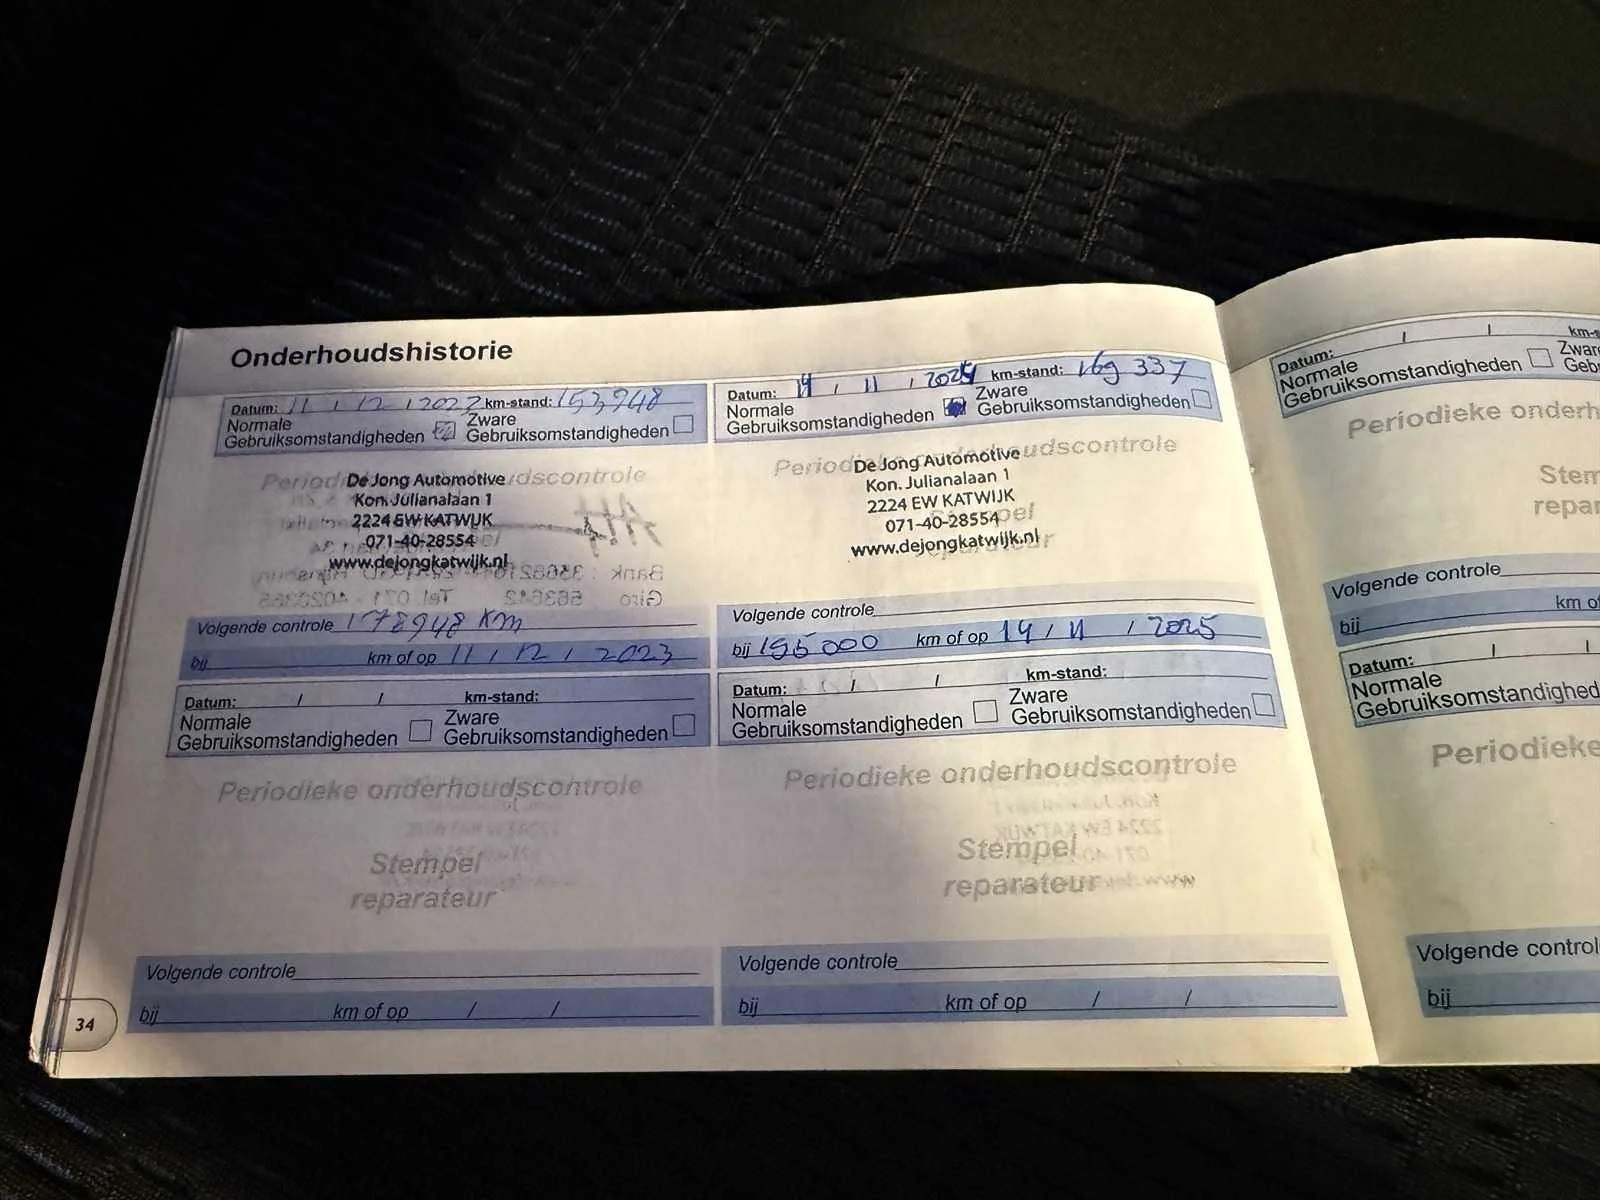 Onderhoudshistorie
Datum: 11 / 12 / 2022 km-stand: 153948
Normale Gebruiksomstandigheden Zware Gebruiksomstandigheden
Periodieke onderhoudscontrole
De Jong Automotive
Kon. Julianalaan 1
2224 EW KATWIJK
071-40-28554
www.dejongkatwijk.nl
Volgende controle 178948 Km
bij km of op 11 / 12 / 2023
Datum: 14 / 11 / 2024 km-stand: 169 337
Normale Gebruiksomstandigheden Zware Gebruiksomstandigheden
Periodieke onderhoudscontrole
De Jong Automotive
Kon. Julianalaan 1
2224 EW KATWIJK
071-40-28554
www.dejongkatwijk.nl
Stempel
reparateur
Volgende controle
bij 195000 km of op 14 / 11 / 2025
Datum: / / km-stand:
Normale Gebruiksomstandigheden Zware Gebruiksomstandigheden
Periodieke onderhoudscontrole
Stempel
reparateur
Volgende controle
bij km of op / /
Datum: / / km-stand:
Normale Gebruiksomstandigheden Zware Gebruiksomstandigheden
Periodieke onderhoudscontrole
Stempel
reparateur
Volgende controle
bij km of op / /
34
Datum: / / km-s
Normale Gebruiksomstandigheden Zware
Periodieke onderh
Stem
repar
Volgende controle
bij km o
Datum: / /
Normale
Gebruiksomstandighed
Periodieke
Volgende control
bij